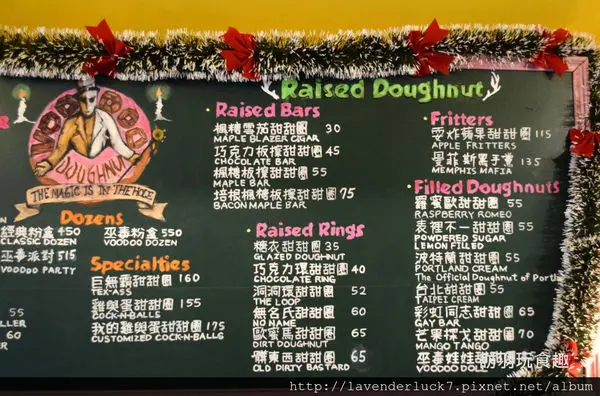 VOODOO
DOUGHNUT
THE MAGIC IS IN THE HOLE
Dozens
經典粉盒 450
CLASSIC DOZEN
巫毒粉盒 550
VOODOO DOZEN
巫毒派對 515
VOODOO PARTY
Specialties
巨無霸甜甜圈 160
TEX-ASS
雞與蛋甜甜圈 155
COCK-N-BALLS
我的雞與蛋甜甜圈 175
CUSTOMIZED COCK-N-BALLS
55
60
Raised Doughnut
Raised Bars
楓糖雪茄甜甜圈 30
MAPLE BLAZER CIGAR
巧克力板擦甜甜圈 45
CHOCOLATE BAR
楓糖板擦甜甜圈 55
MAPLE BAR
培根楓糖板擦甜甜圈 75
BACON MAPLE BAR
Raised Rings
糖衣甜甜圈 35
GLAZED DOUGHNUT
巧克力環甜甜圈 40
CHOCOLATE RING
洞洞環甜甜圈 52
THE LOOP
無名氏甜甜圈 60
NO NAME
歐蜜馬甜甜圈 65
DIRT DOUGHNUT
髒東西甜甜圈 65
OLD DIRTY BASTARD
Fritters
耍炸蘋果甜甜圈 115
APPLE FRITTERS
曼菲斯黑手黨 135
MEMPHIS MAFIA
Filled Doughnuts
羅蜜歐甜甜圈 55
RASPBERRY ROMEO
表裡不一甜甜圈 55
POWDERED SUGAR
LEMON FILLED
波特蘭甜甜圈 55
PORTLAND CREAM
The Official Doughnut of Portl
台北甜甜圈 55
TAIPEI CREAM
彩虹同志甜甜圈 65
GAY BAR
芒果探戈甜甜圈 70
MANGO TANGO
巫毒娃娃甜甜圈
VOODOO DOLL
玩食趣
http://lavenderluck7.pixnet.net/album